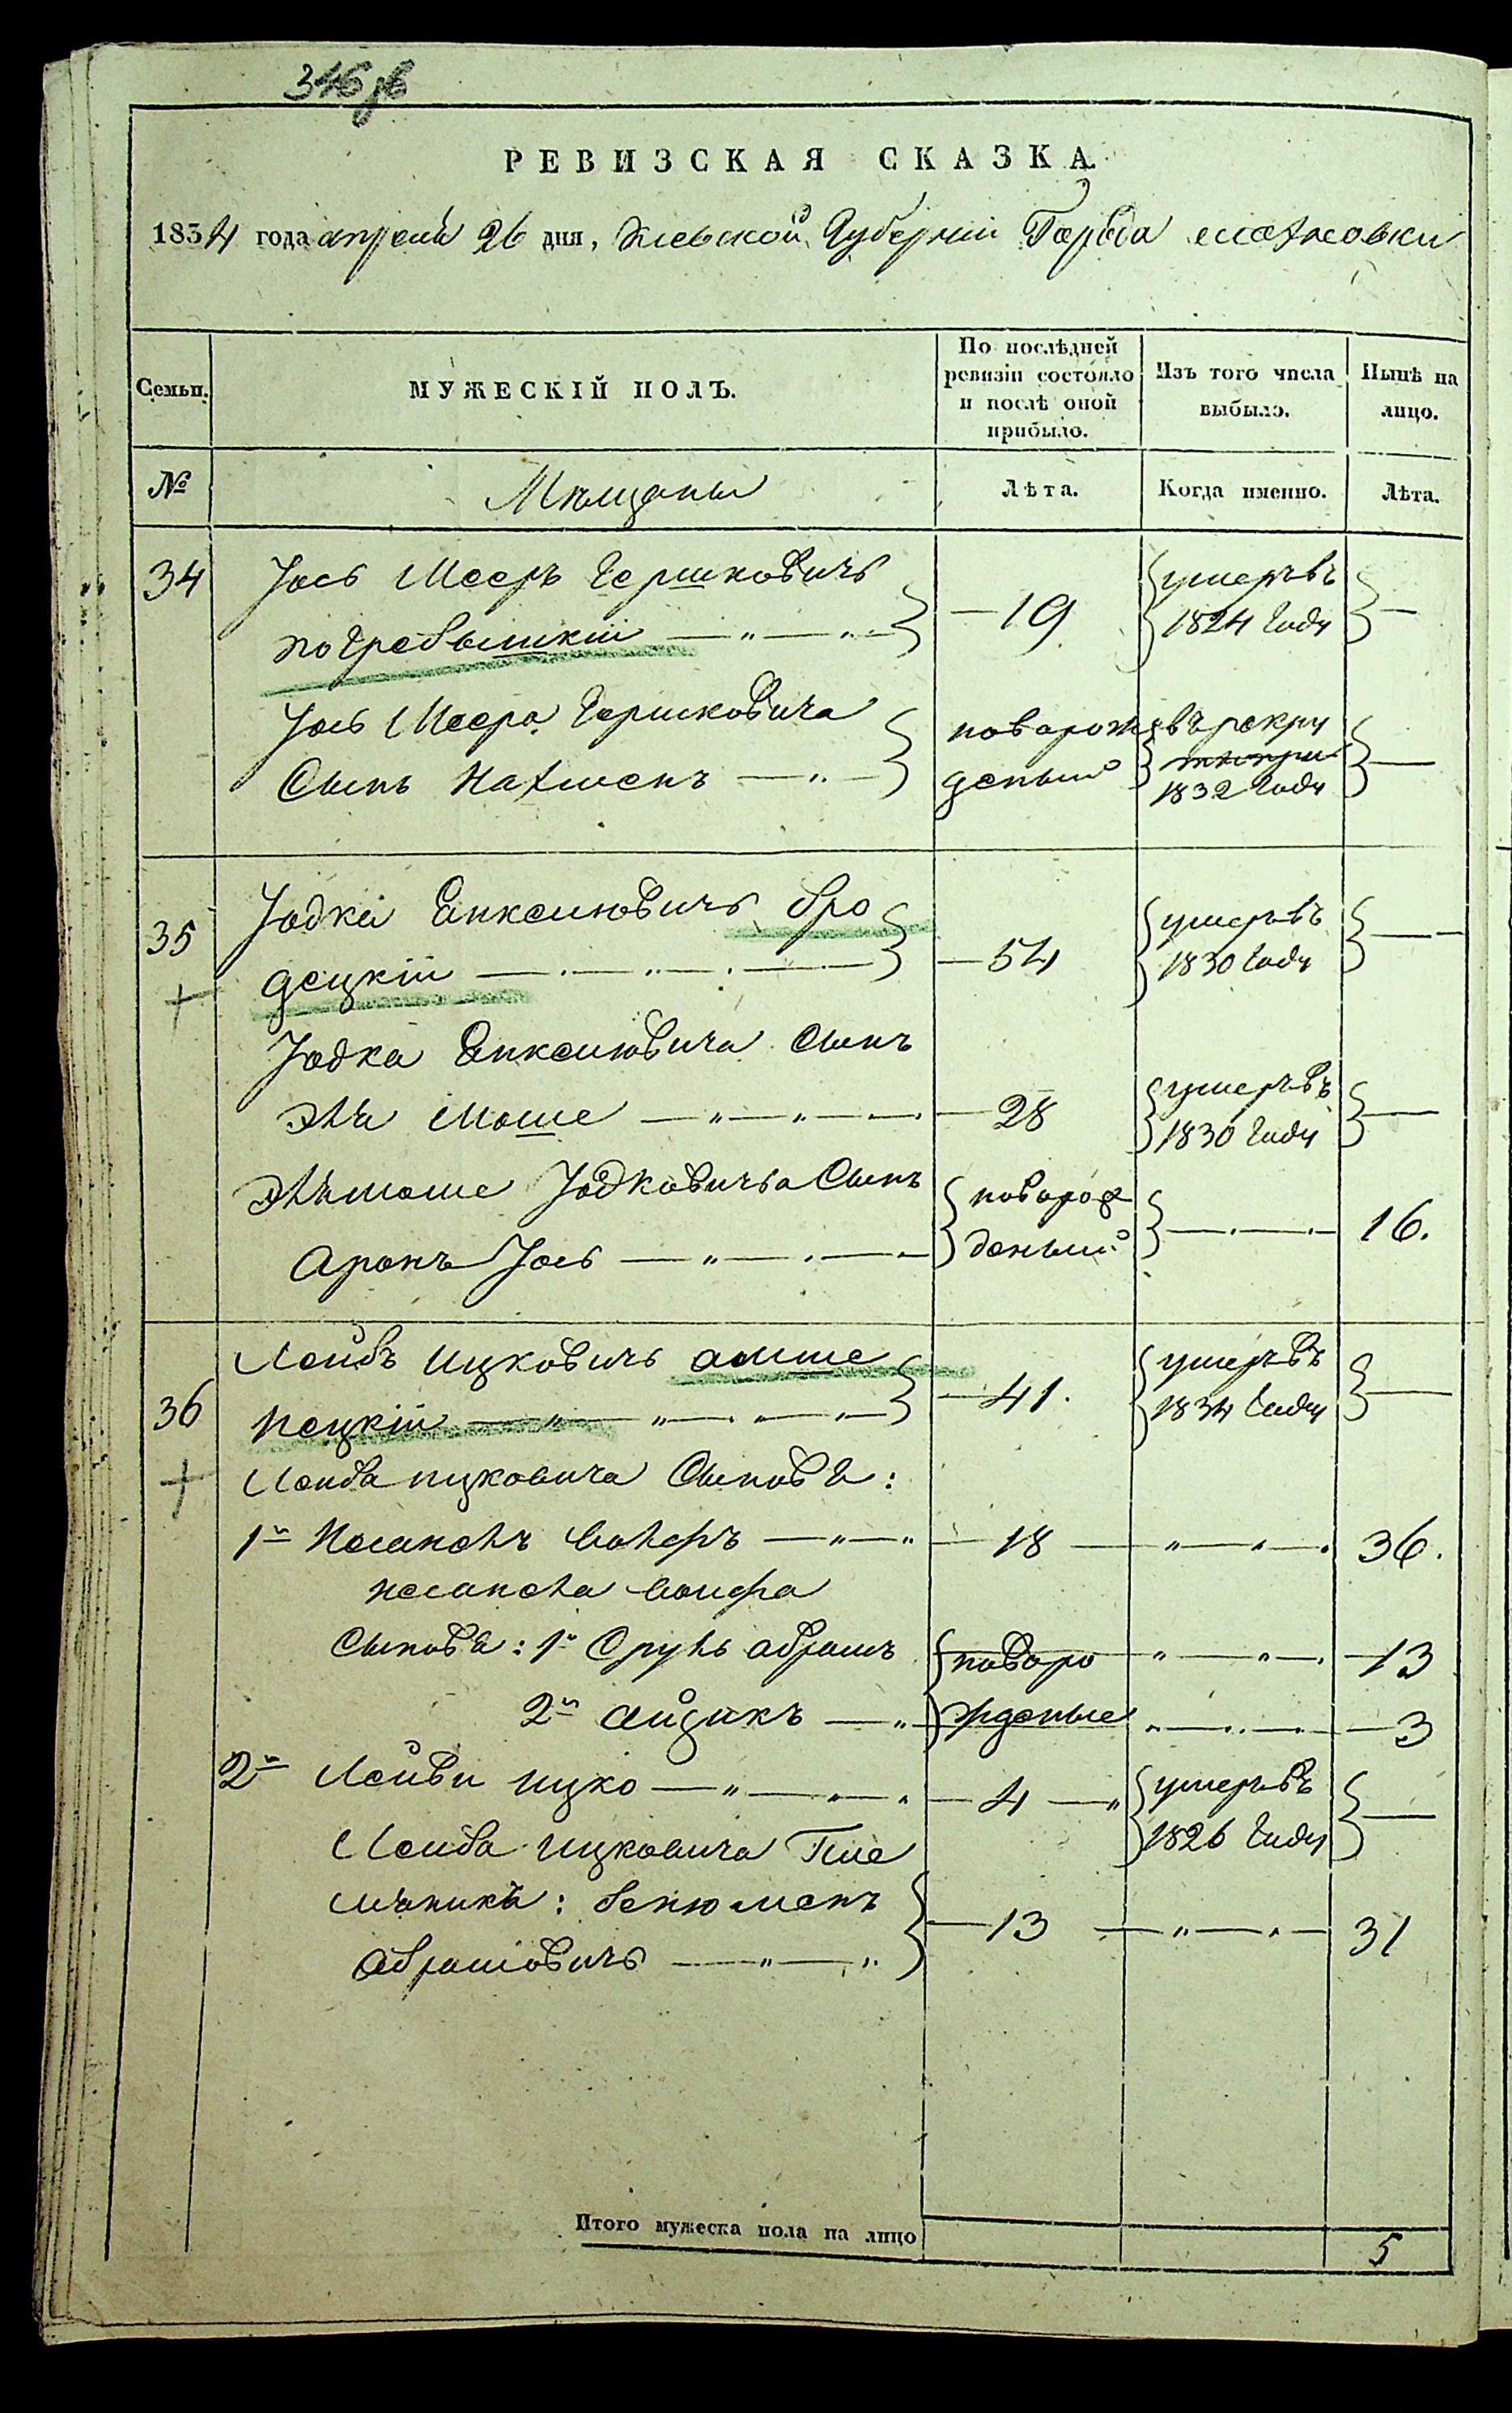 346 об
РЕВИЗСКАЯ СКАЗКА
1834 года апреля 26 дня, Киевской Губернии Города
Семьи.
МУЖЕСКІЙ ПОЛЪ.
По послѣдней ревизіи состояло и послѣ оной прибыло.
Изъ того числа выбыло.
Нынѣ на лицо.
№
Мѣщаны
Лѣта.
Когда именно.
Лѣта.
34
Іось Меер Гершковичъ
погребышкій
19
умеръ въ
1824 Году
Іось Меера Гершковича
Сынъ Нахменъ
новорож
деный
въ рекру
1832 Году
35
Іодка Бро
децкій
54
умеръ въ
1830 Году
Іодка Сынъ
Эля Моше
28
умеръ въ
1830 Году
Элѣ моше Іодковича Сынъ
Аронъ Іось
новорож
деный
16.
36
Лейбъ Ицковичъ
пецкій
41.
умеръ въ
1834 Году
Лейба ицковича Сыновя:
1й Вольфъ
18
36.
Вольфа
Сыновя: 1й Сруль абрамъ
новоро
13
2й айзикъ
жденые
3
2й Лейби ицко
4
умеръ въ
1826 Году
Лейба ицковича Пле
мяникъ: бенюменъ
абрамовичъ
13
31
Итого мужеска пола на лицо
5